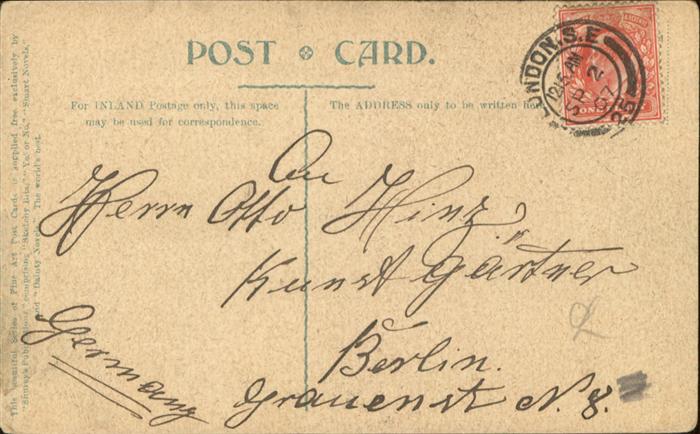 POST CARD.
For INLAND Postage only, this space
may be used for correspondence.
The ADDRESS only to be written here
LONDON. S.E
12.15 AM
SP 2
07
An
Herrn Otto Hinz
Kunstgärtner
Berlin.
Grauenst N. 8.
Germany
This beautiful Series of Fine Art Post Cards is supplied free exclusively by
Shurey's Publications, comprising "Sketchy Bits," "Yes or No," "Smart Novels,"
and "Dainty Novels." The world's best.